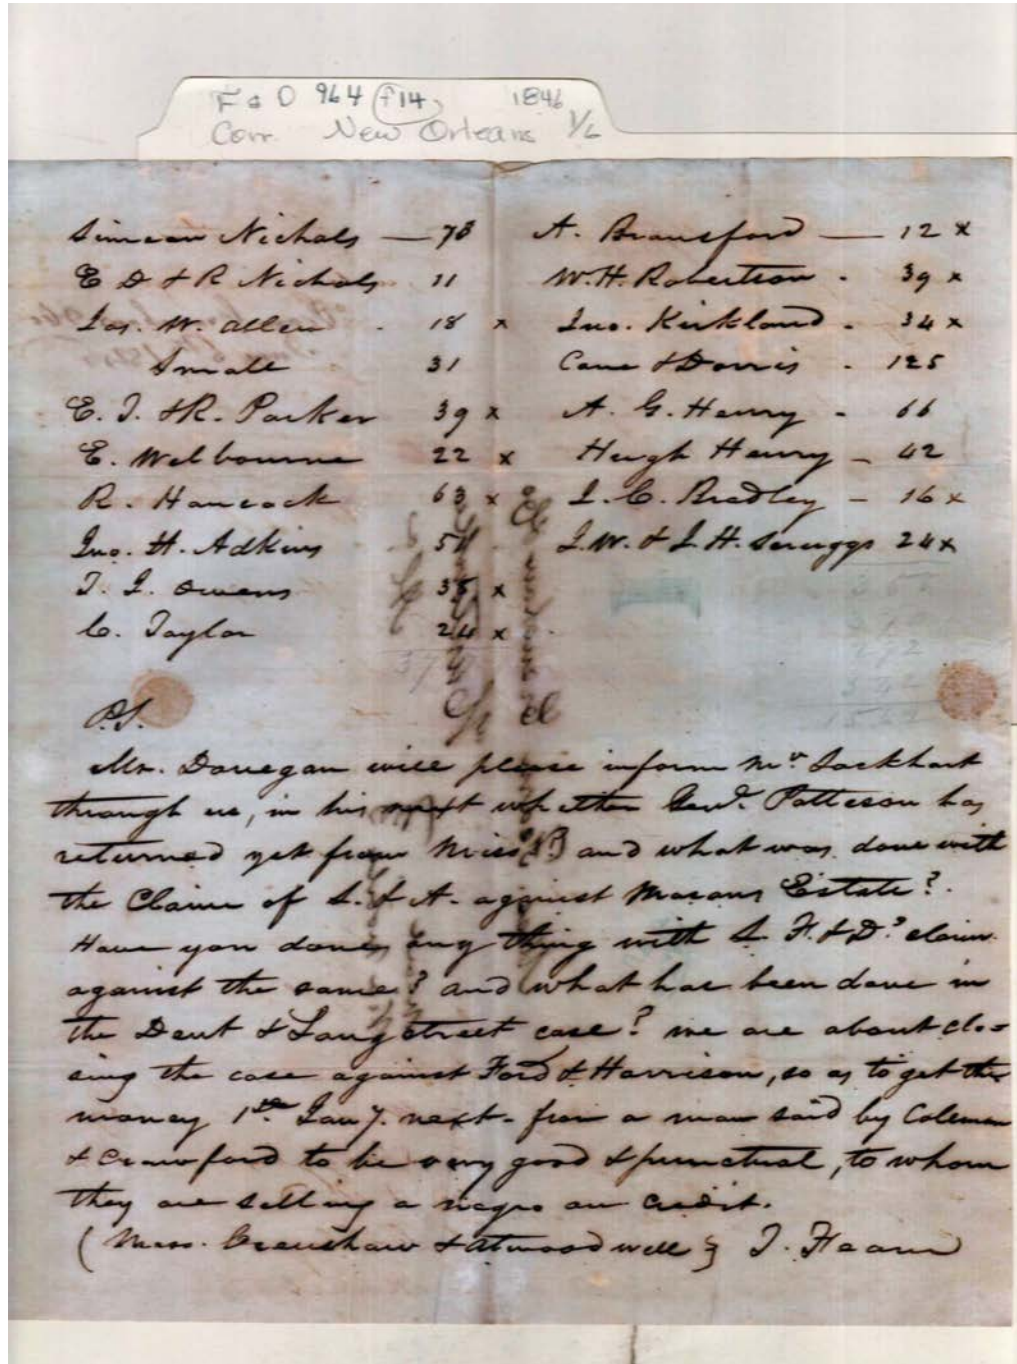 F & D 964 (f 14) 1846
Corr. New Orleans 1/6
Simeon Nichols — 78
E D & R Nichols 11
Jas. W. Allen - 18 x
Small 31
E. J. & R. Parker 39 x
E. Welbourne 22 x
R. Hancock 63 x
Jno. H. Adkins 54
T. J. Owens 38 x
C. Taylor 24 x
A. Bransford — 12 x
W. H. Robertson - 39 x
Jno. Kirkland - 34 x
Cane & Dorris - 125
A. G. Henry - 66
Hugh Henry - 42
J. C. Bradley - 16 x
J. W. & J. H. Scruggs 24 x
P.S.
Mr. Donegan will please inform Mr. Lockhart
through us, in his next whether Genl. Patteson has
returned yet from Missi. and what was done with
the Claim of L. & A. against Masons Estate?
Have you done any thing with L. F. & D.s claim
against the same? and what has been done in
the Dent & Langstreet case? we are about clo=
sing the case against Ford & Harrison, so as to get the
money 1st. Jany. next - from a man said by Coleman
& Crawford to be very good & punctual, to whom
they are selling a negro on credit.
(Mess. Crenshaw & Atwood will } T. Fearn